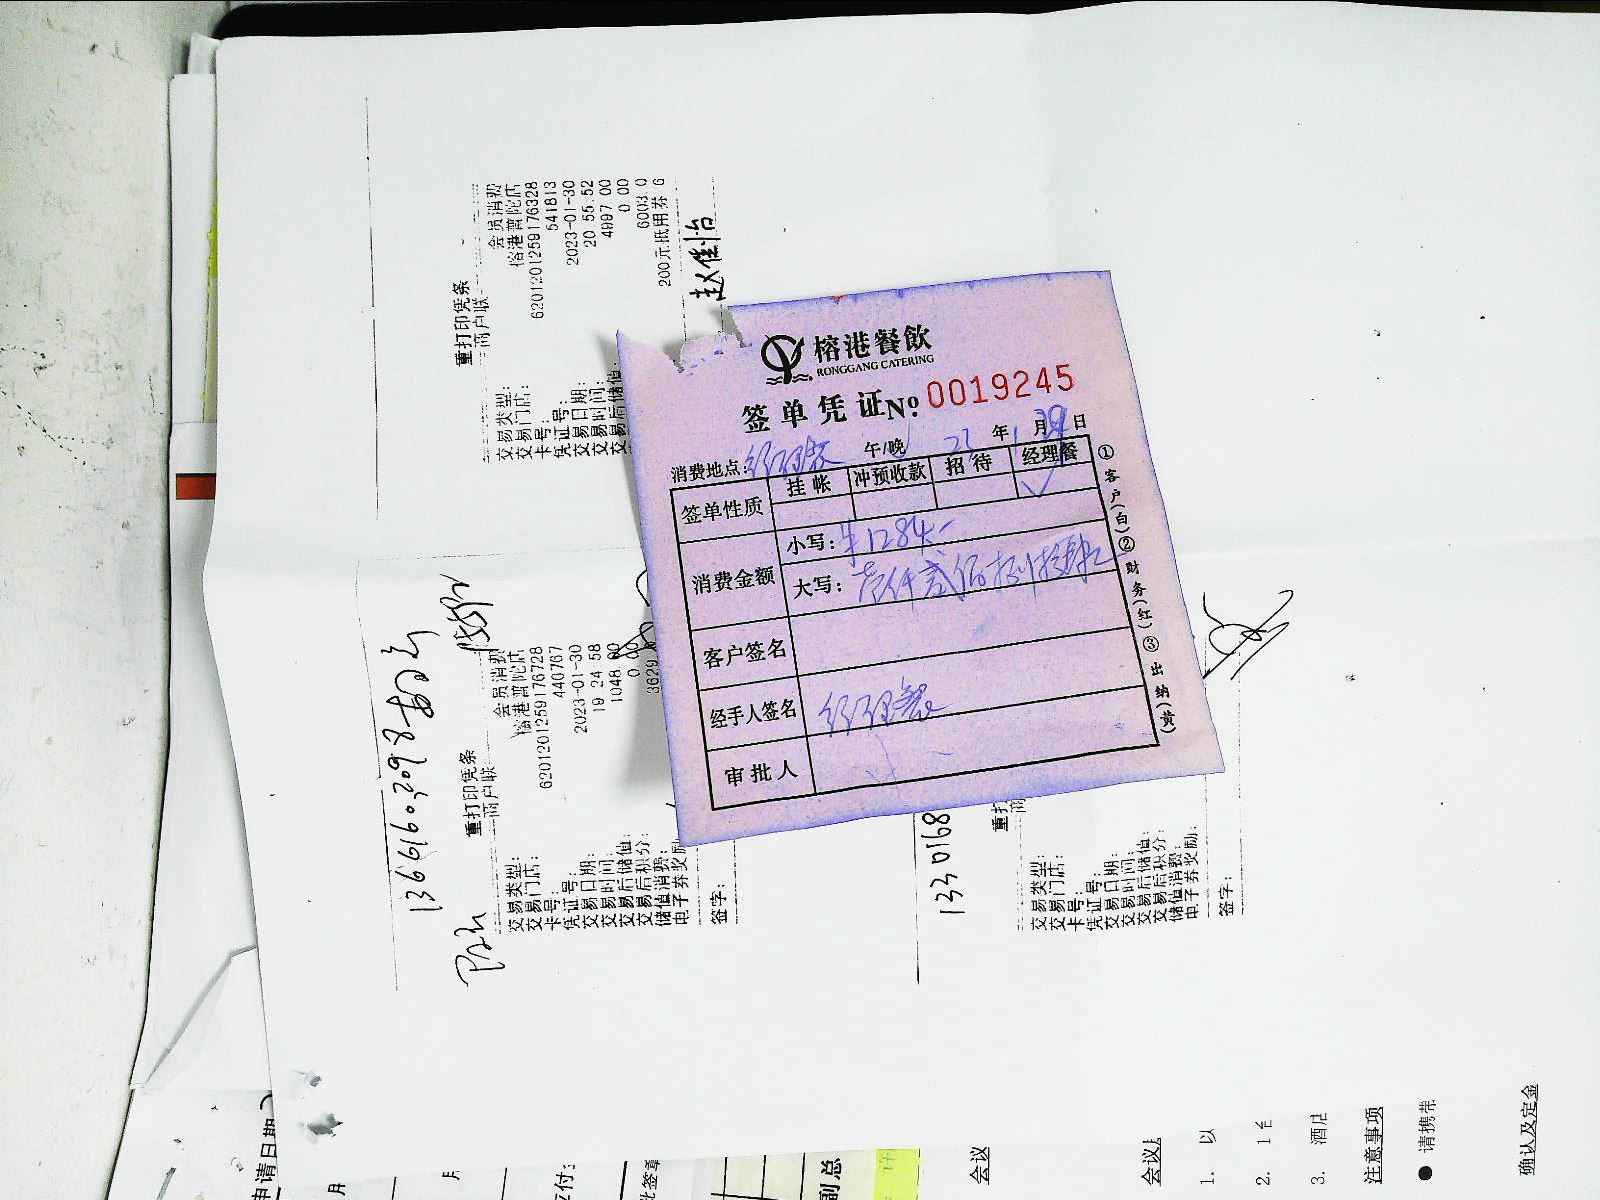 榕港餐飲
RONGGANG CATERING
签单凭证 No. 0019245
消费地点: 午/晚 年 1 月 日
签单性质 挂帐 冲预收款 招待 经理餐
✓
消费金额 小写: ¥1284-
大写: 壹仟贰佰捌拾肆元
客户签名
经手人签名
审批人
①客户(白) ②财务(红) ③出纳(黄)
重打印凭条
商户联
交易类型: 会员消费
交易门店: 榕港普陀店
卡号: 6201201259176328
凭证号: 541813
交易日期: 2023-01-30
交易时间: 20 55 52
交易后储值 4997 00
0.00
6003.0
200元抵用券 6
赵佳怡
13661603098
重打印凭条
商户联
交易类型: 会员消费
交易门店: 榕港普陀店
卡号: 6201201259176728
凭证号: 440767
交易日期: 2023-01-30
交易时间: 19 24 58
交易后储值: 1048 00
交易后积分: 0.00
储值消费: 3629
电子券奖励
签字:
1330168
重打
商
交易类型:
交易门店:
卡号:
凭证号:
交易日期:
交易时间:
交易后储值:
交易后积分:
储值消费:
电子券奖励:
签字:
申请日期
月
月
应付
批签章
副总
会议
会议
1. 以
2. 1
3. 酒店
注意事项
● 请携带
确认及定金